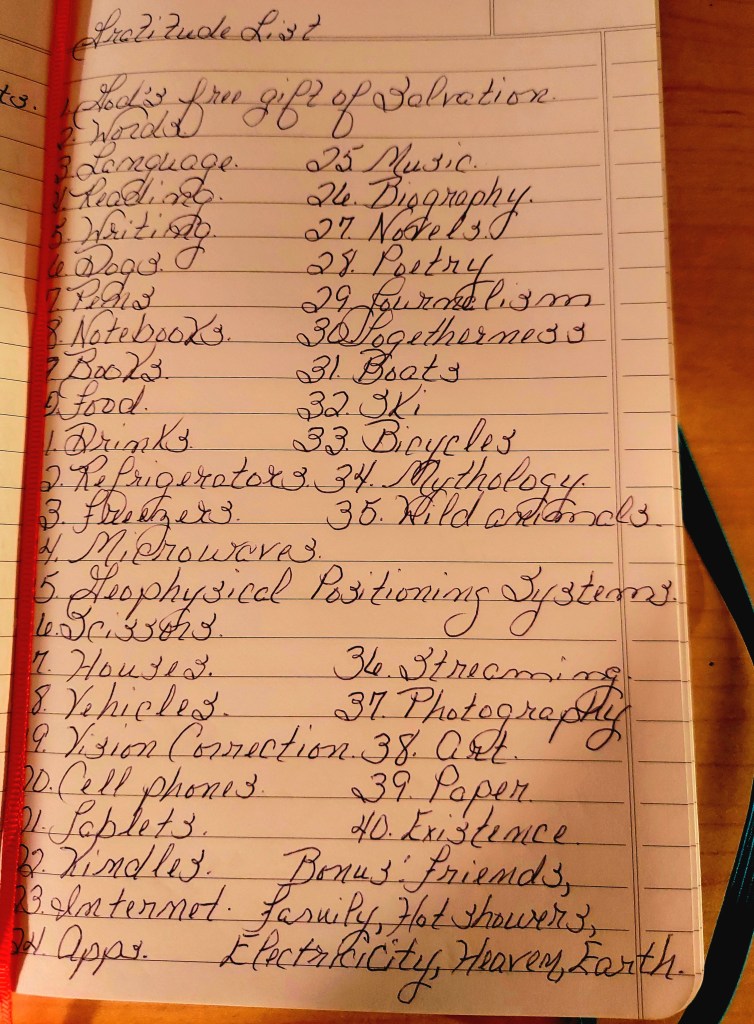 ts.
Gratitude List
1. God's free gift of Salvation.
2. Words
3. Language.
4. Reading.
5. Writing.
6. Dogs.
7. Pens
8. Notebooks.
9. Books.
0. Food.
1. Drinks.
2. Refrigerators.
3. Freezers.
4. Microwaves.
5. Geophysical Positioning Systems.
6. Scissors.
7. Houses.
8. Vehicles.
9. Vision Correction.
20. Cell phones.
21. Tablets.
22. Kindles.
23. Internet.
24. Apps.
25 Music.
26. Biography.
27. Novels.
28. Poetry
29. Journalism
30 Togetherness
31. Boats
32. Ski
33. Bicycles
34. Mythology.
35. Wild animals.
36. Streaming.
37. Photography
38. Art.
39. Paper.
40. Existence.
Bonus: Friends,
Family, Hot showers,
Electricity, Heaven, Earth.